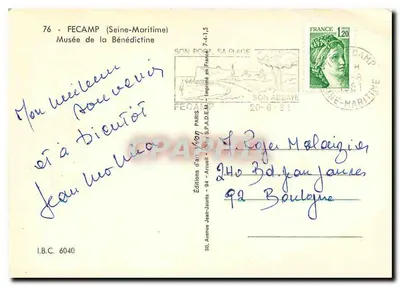 76 - FECAMP (Seine-Maritime)
Musée de la Bénédictine
Mon meilleur
souvenir
et à bientôt
Jean
I.B.C. 6040
Editions d'art Yvon PARIS
30, Avenue Jean-Jaurès - 94 - Arcueil - S.P.A.D.E.M. - Imprimé en France 7-4-1,5
SON PORT SA PLAGE
SON ABBAYE
FECAMP
20-6-81
FRANCE
1,20
SEINE-MARITIME
Roger
240 Bd Jean Jaurès
92 Boulogne